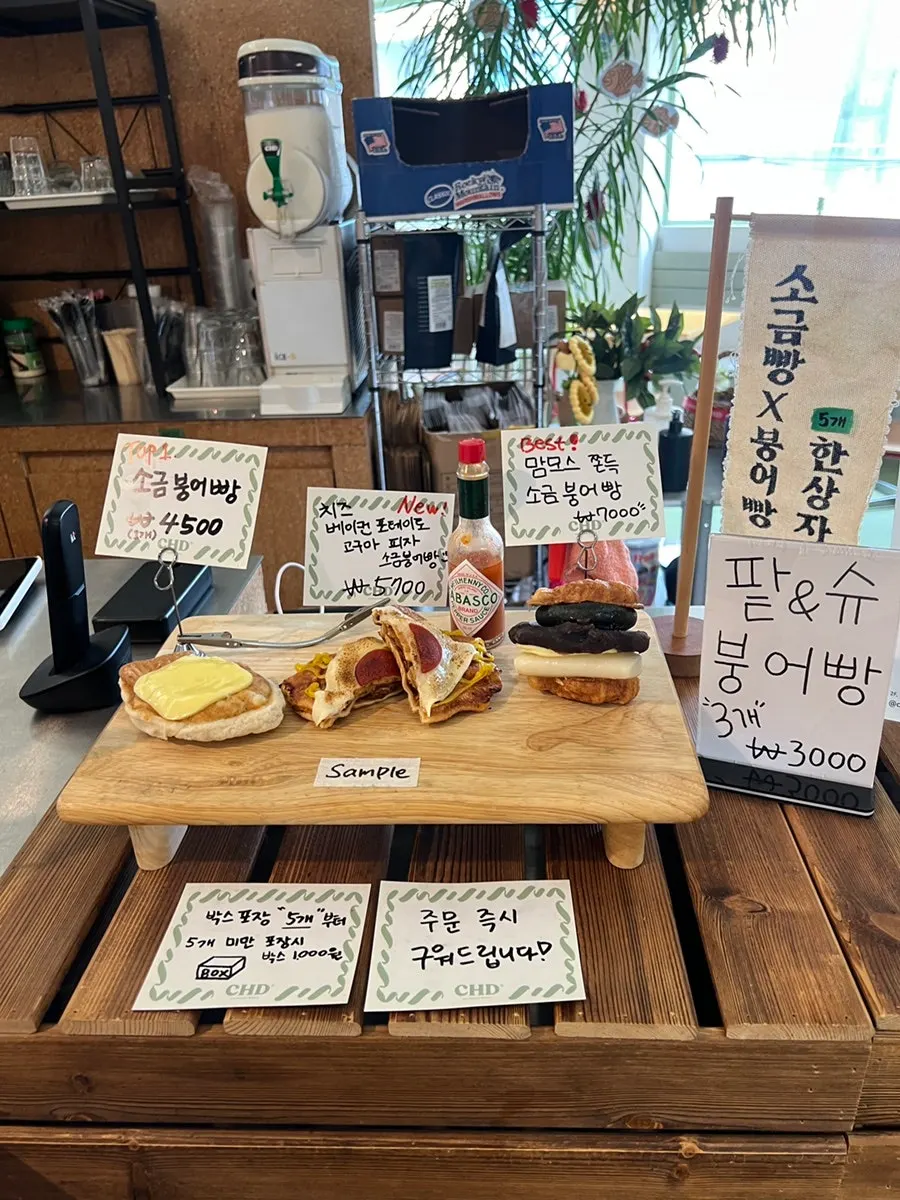 CLASSIC
Rocky Mountain
MARSHMALLOWS
소금빵X붕어빵
5개
한상자
TOP1
소금붕어빵
(1개) ₩4500
CHD
치즈 New!
베이컨 포테이토
고구마 피자
소금붕어빵
₩5700
Best!
맘모스 쫀득
소금붕어빵
₩7000
TABASCO
BRAND
PEPPER SAUCE
팥&슈
붕어빵
"3개"
₩3000
Sample
박스포장 "5개"부터
5개 미만 포장시
박스 1,000원
BOX
CHD
주문 즉시
구워드립니다!
CHD